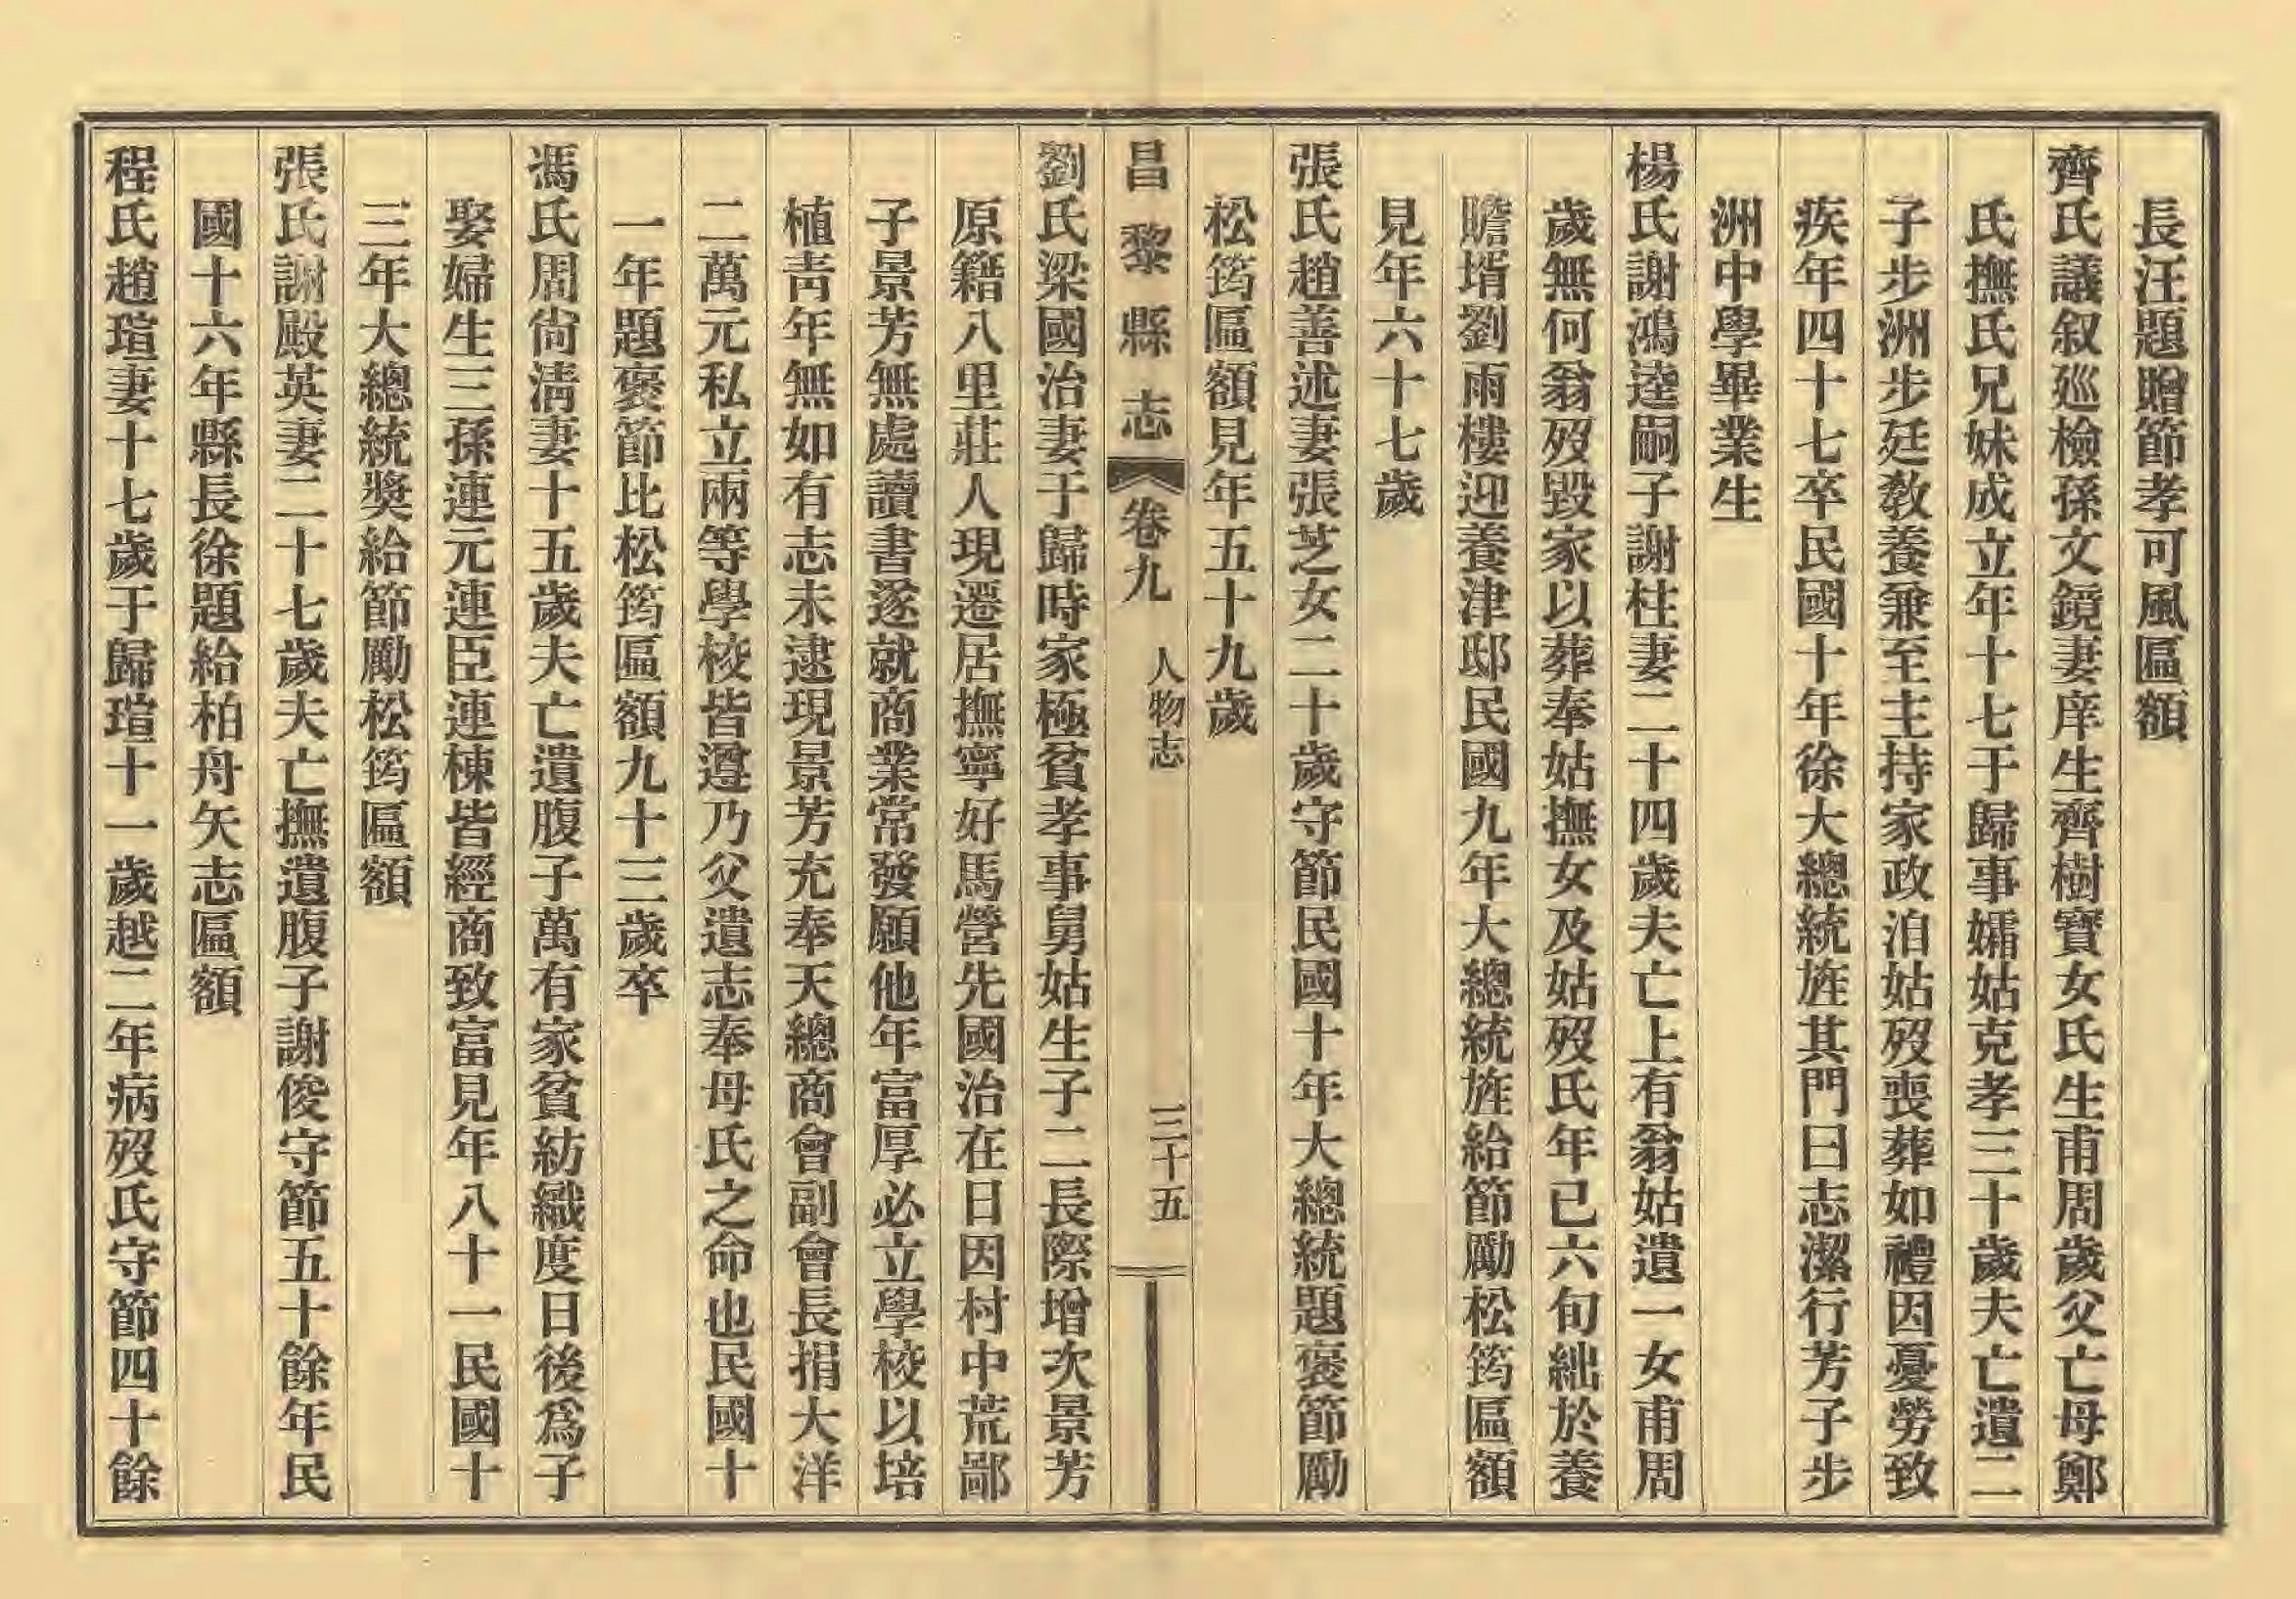 長汪題贈節孝可風匾額
齊氏議叙巡檢孫文鏡妻庠生齊樹寶女氏生甫周歲父亡母鄭
氏撫氏兄妹成立年十七于歸事孀姑克孝三十歲夫亡遺二
子步洲步廷敎養兼至主持家政洎姑歿喪葬如禮因憂勞致
疾年四十七卒民國十年徐大總統旌其門曰志潔行芳子步
洲中學畢業生
楊氏謝鴻逵嗣子謝柱妻二十四歲夫亡上有翁姑遺一女甫周
歲無何翁歿毀家以葬奉姑撫女及姑歿氏年已六旬絀於養
贍壻劉雨樓迎養津邸民國九年大總統旌給節勵松筠匾額
見年六十七歲
張氏趙善述妻張芝女二十歲守節民國十年大總統題褒節勵
松筠匾額見年五十九歲
昌黎縣志 卷九 人物志 三十五
劉氏梁國治妻于歸時家極貧孝事舅姑生子二長際增次景芳
原籍八里莊人現遷居撫寧好馬營先國治在日因村中荒鄙
子景芳無處讀書遂就商業常發願他年富厚必立學校以培
植靑年無如有志未逮現景芳充奉天總商會副會長捐大洋
二萬元私立兩等學校皆遵乃父遺志奉母氏之命也民國十
一年題褒節比松筠匾額九十三歲卒
馮氏周尙淸妻十五歲夫亡遺腹子萬有家貧紡織度日後爲子
娶婦生三孫連元連臣連棟皆經商致富見年八十一民國十
三年大總統奬給節勵松筠匾額
張氏謝殿英妻二十七歲夫亡撫遺腹子謝俊守節五十餘年民
國十六年縣長徐題給柏舟矢志匾額
程氏趙瑄妻十七歲于歸瑄十一歲越二年病歿氏守節四十餘